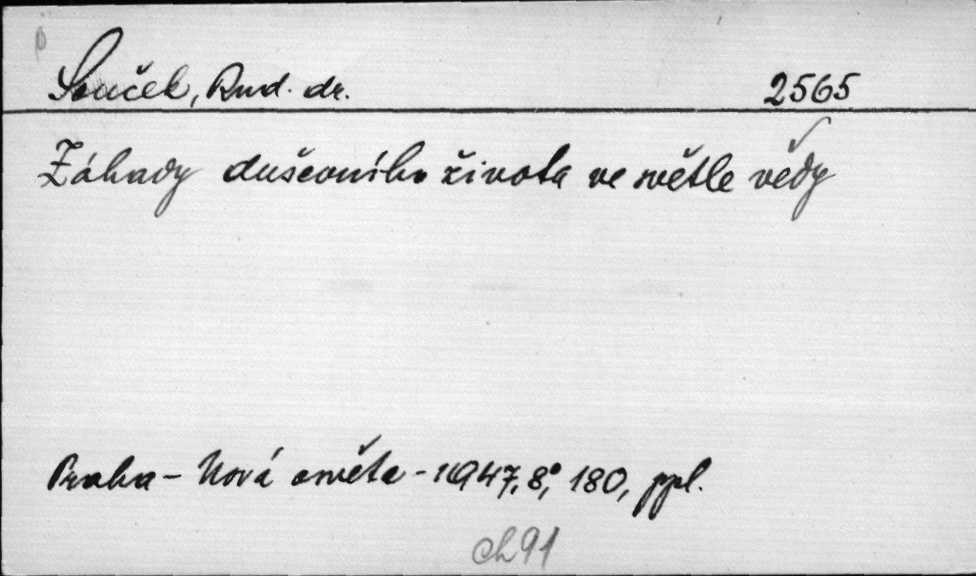 Souček, Rud. dr. 2565
Záhady duševního života ve světle vědy
Praha - Nová osvěta - 1947, 8°, 180, ppl.
ch 91